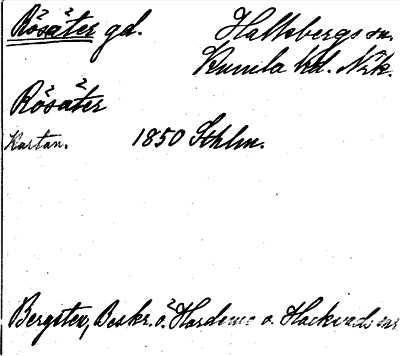 Rösåter gd. Hallsbergs sn.
Kumla hd. Nrk.
Rösåter
Kartan. 1850 Sthlm.
Bergsten, Beskr. ö. Hardemo o. Hackvads snr